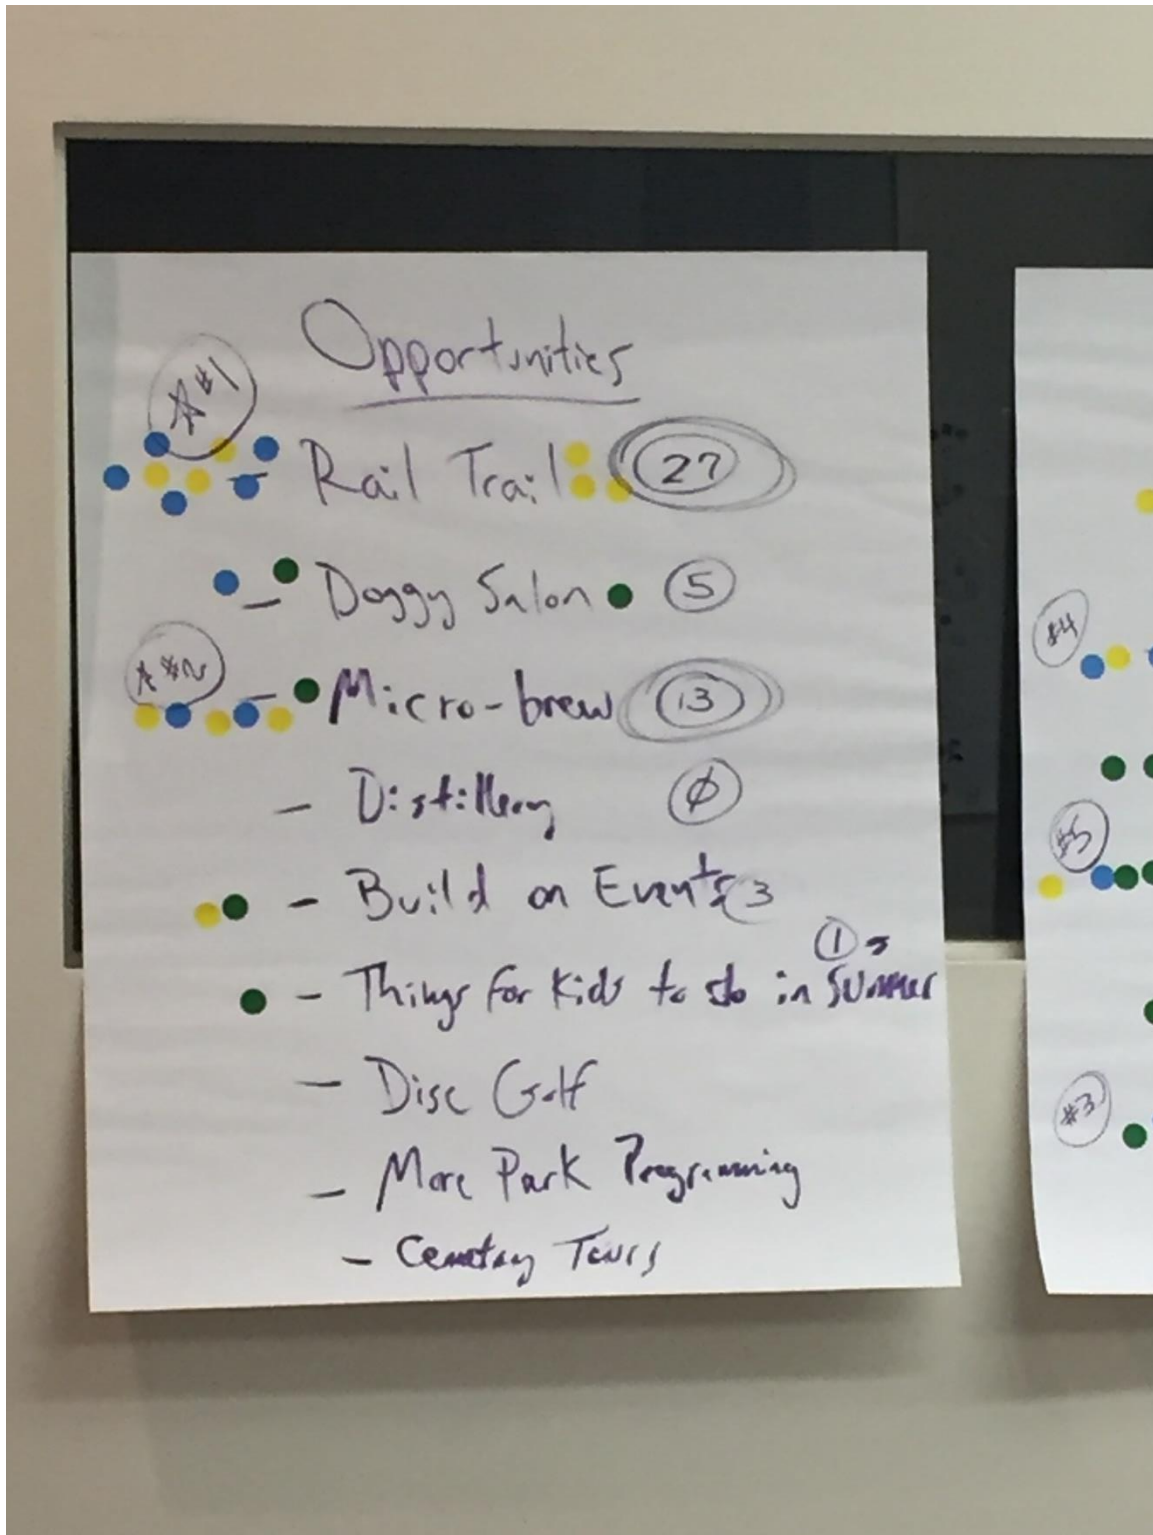 Opportunities
#1
- Rail Trail 27
- Doggy Salon 5
#2
- Micro-brew 13
- Distillery Ø
- Build on Events 3
1
- Things for Kids to do in Summer
- Disc Golf
- More Park Programming
- Cemetary Tours
#4
#5
#3